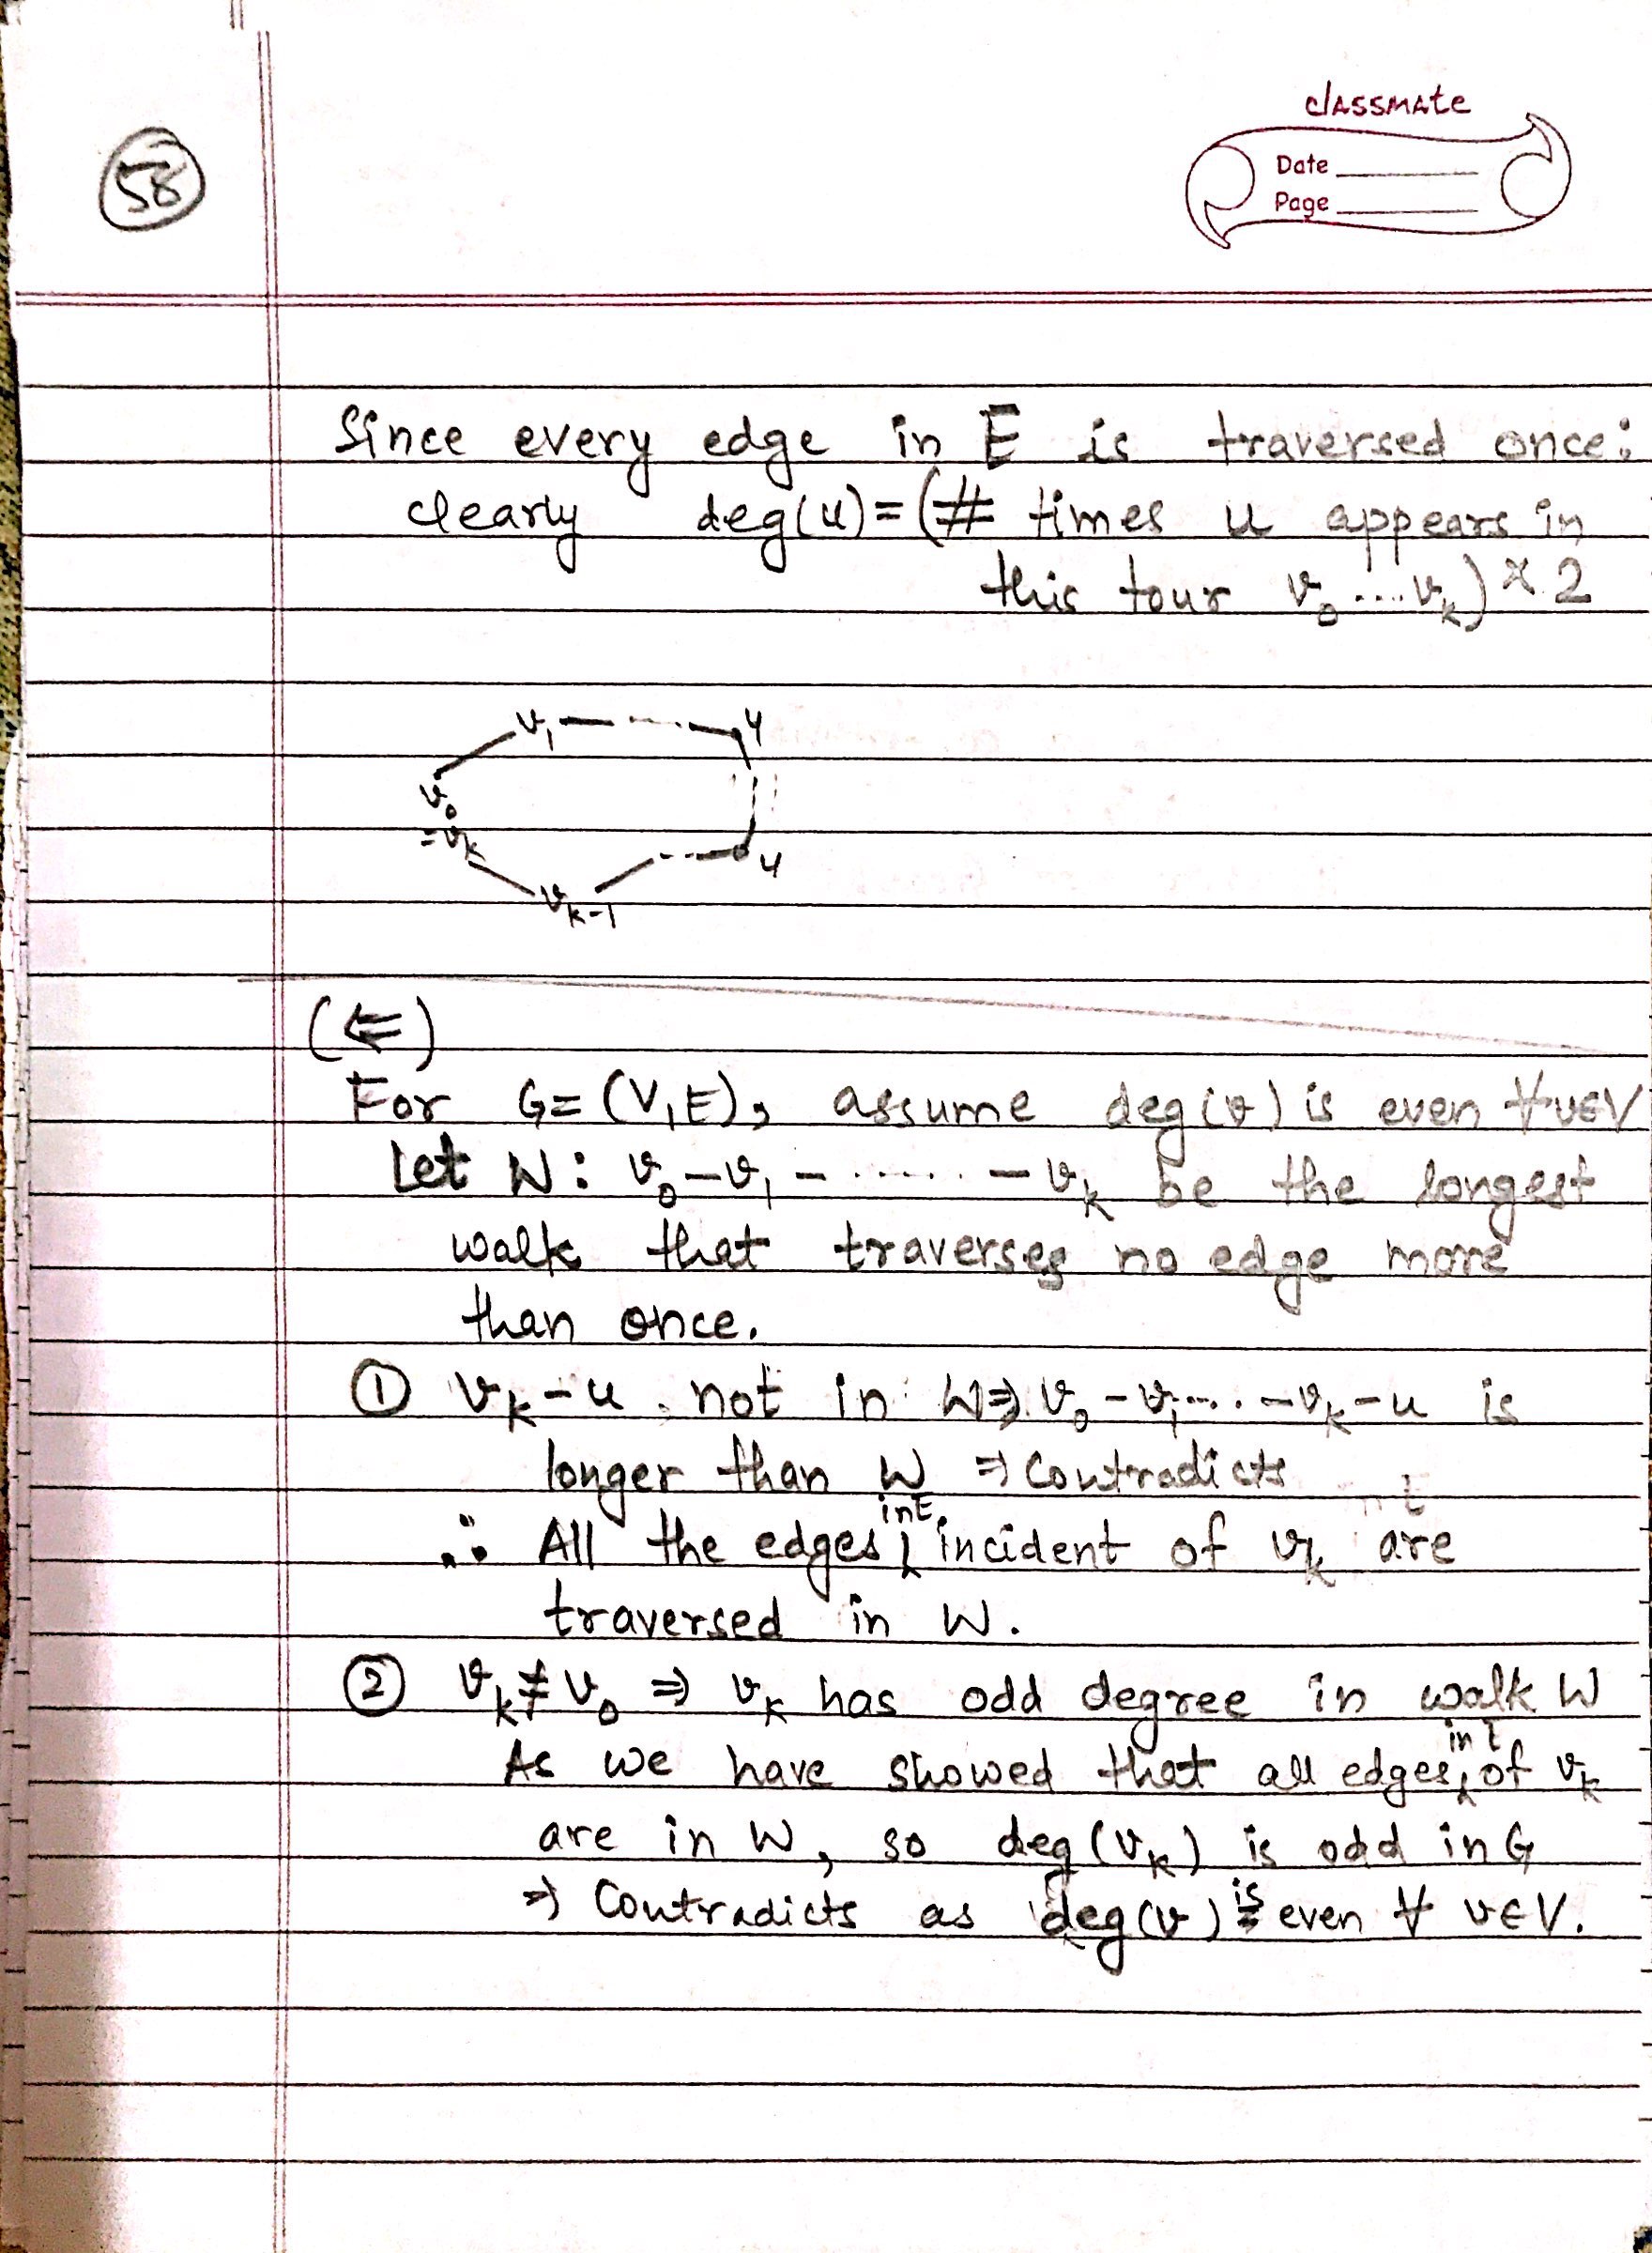 58
classmate
Date
Page
Since every edge in E is traversed once:
clearly deg(u) = (# times u appears in
this tour v₀ .... vₖ) × 2
v₁ u
v₀
=vₖ
u
vₖ₋₁
(⇐)
For G = (V, E), assume deg(v) is even ∀v∈V
Let W: v₀ – v₁ – ...... – vₖ be the longest
walk that traverses no edge more
than once.
① vₖ – u not in W ⇒ v₀ – v₁ .... – vₖ – u is
longer than W ⇒ Contradicts
∴ All the edges in E incident of vₖ are
traversed in W.
② vₖ ≠ v₀ ⇒ vₖ has odd degree in walk W
As we have showed that all edges in E of vₖ
are in W, so deg(vₖ) is odd in G
⇒ Contradicts as deg(v) is even ∀ v∈V.